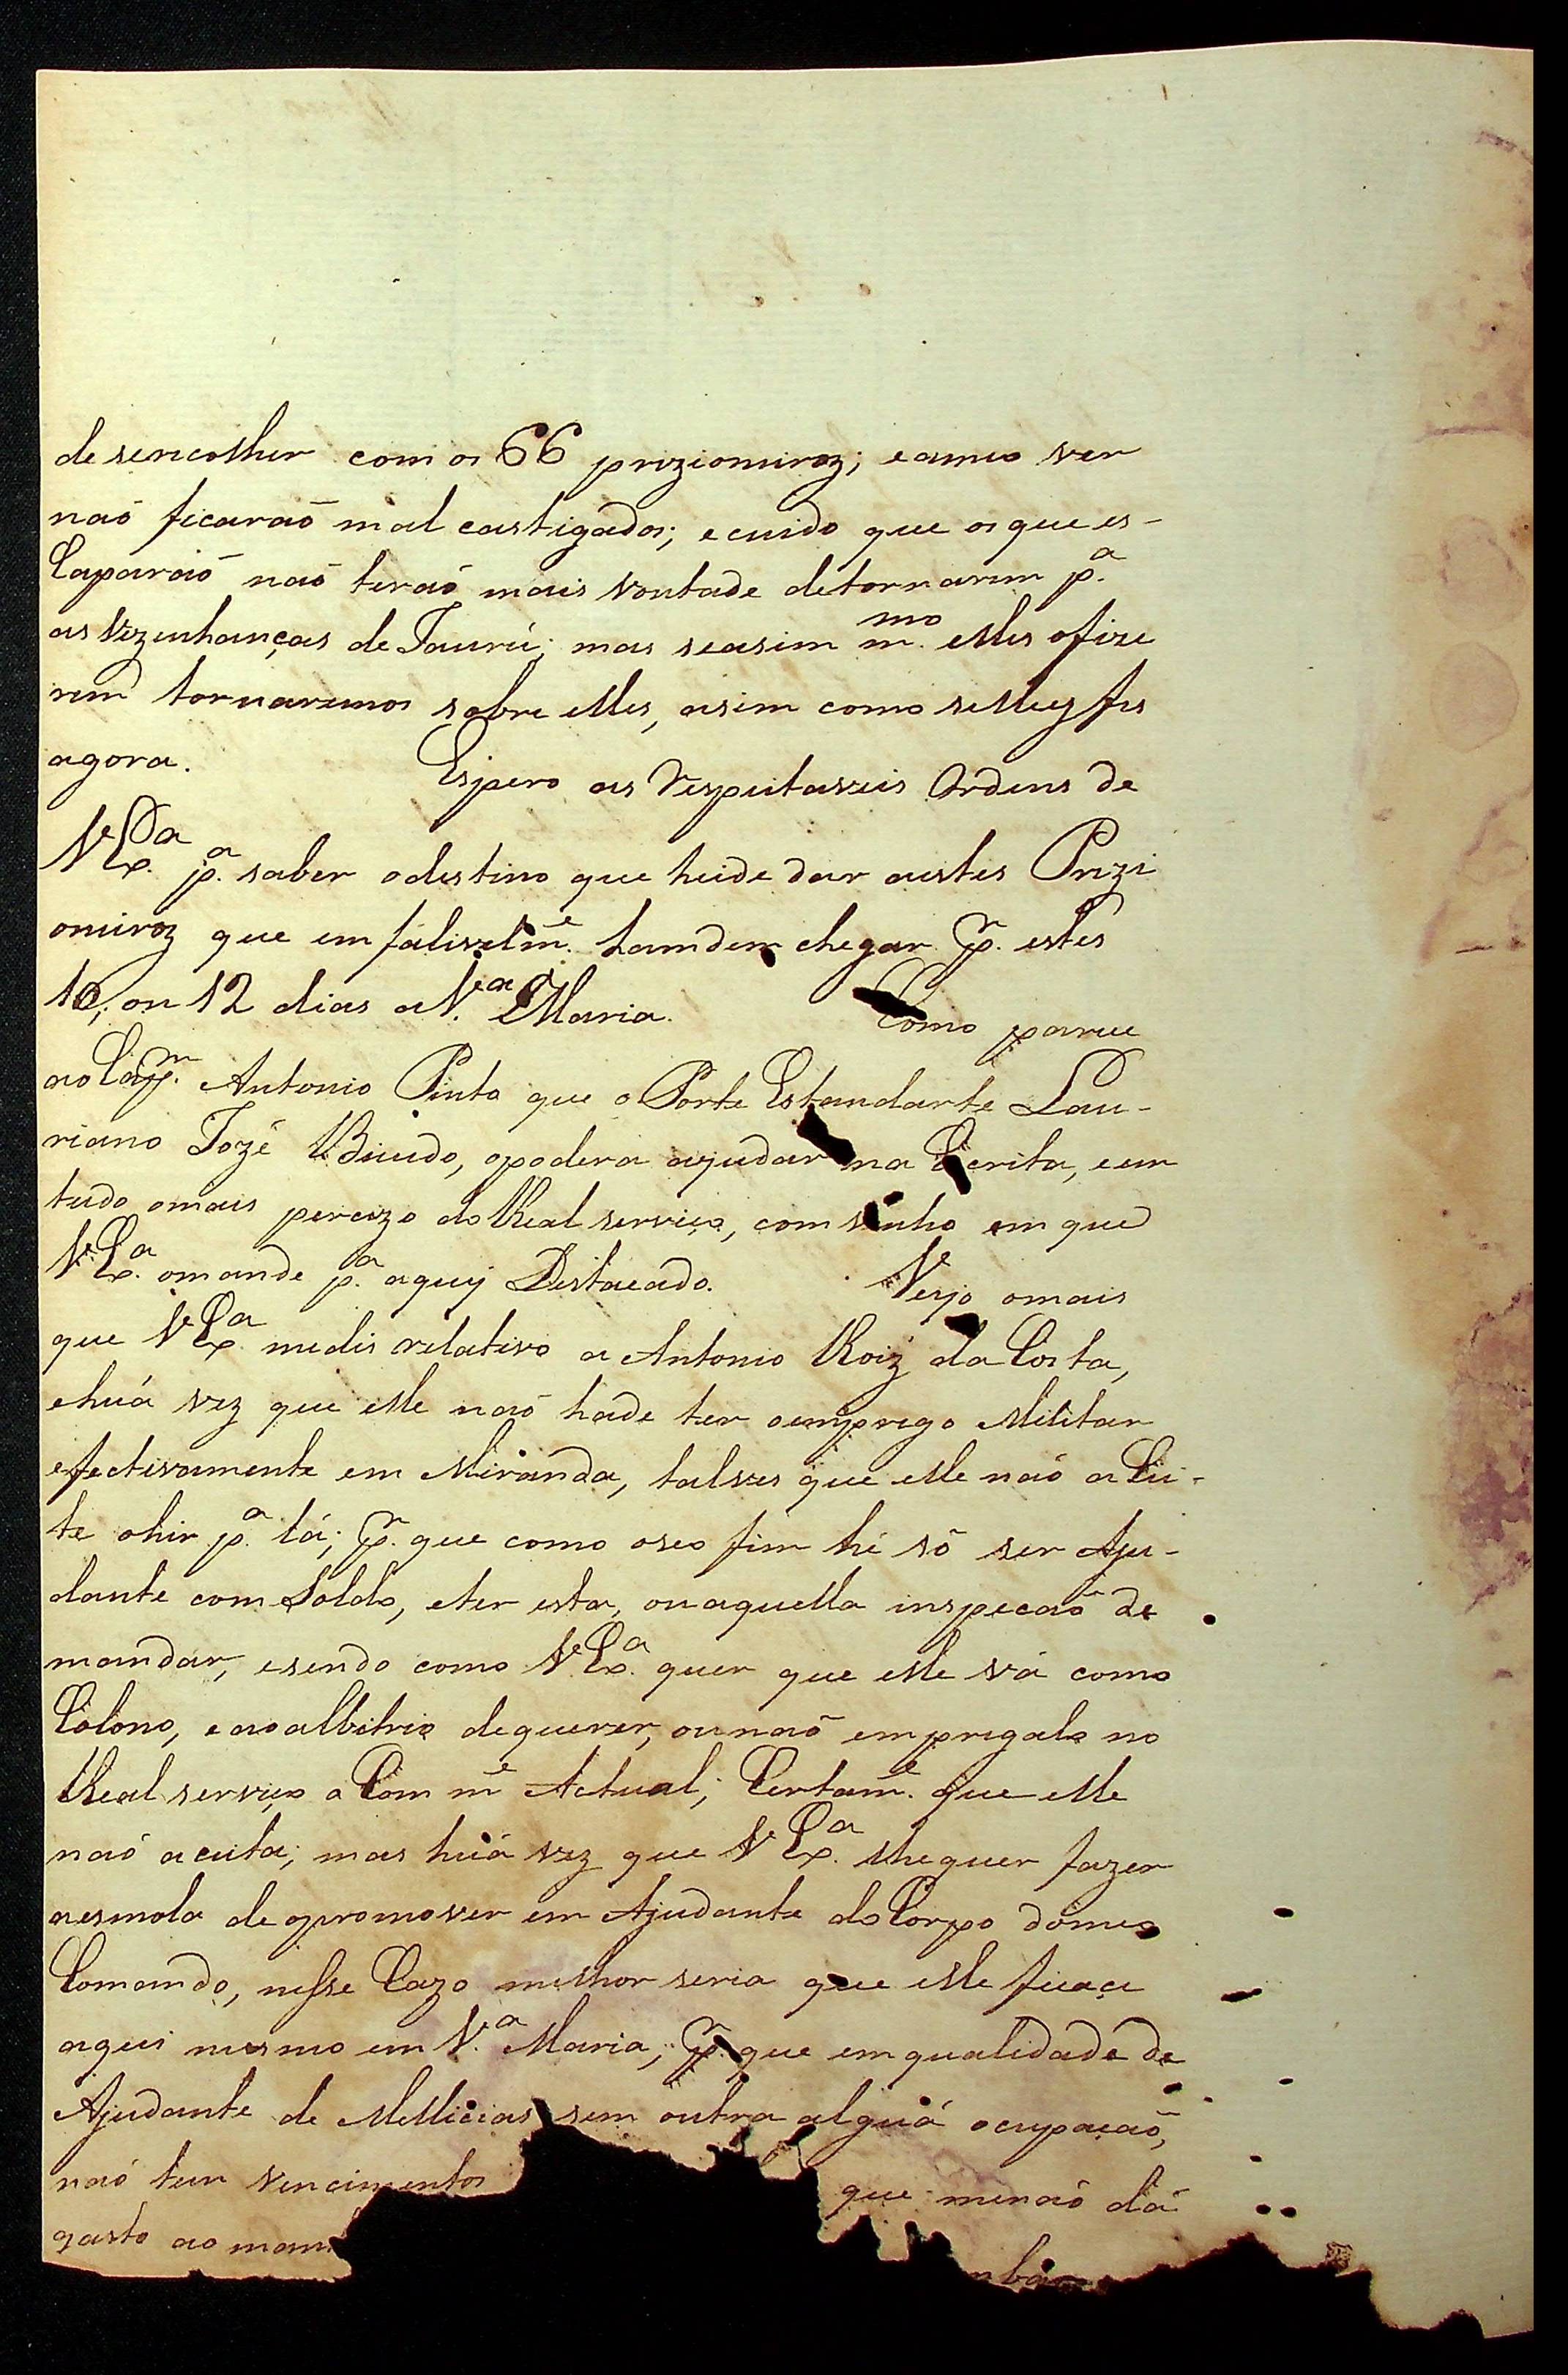 de sencolher com os 66 priziomeiroz; e a meo ver
naõ ficaraõ mal castigados; e cuido que os que es-
Caparaõ naõ teraõ mais vontade de tornarem p.ª
as Vezenhanças de Jaurú; mas se asim m.mo elles o fize
rem tornaremos sobre elles, asim como se lhes fes
agora. Espero as Respeitaveis Ordens de
V Ex.ª p.ª saber o destino que heide dar a estes Prizi
omeiroz que emfalivelm.e hamdem chegar p.r estes
10, ou 12 dias a V.ª Maria. Como parece
ao Cap.m Antonio Pinto que o Porte Estandarte Lau-
riano Jozé Bicudo, o podera ajudar na Escrita, e em
tudo o mais percizo do Real serviço, comvenho em que
V Ex.ª o mande p.ª aquy Destacado. Vejo o mais
que V Ex.ª me dis relativo a Antonio Roiz da Costa,
e huá vez que elle naõ hade ter o emprego Militar
efectivamente em Miranda, talves que elle naõ a Cei-
te o hir p.ª lá; p.r que como o seo fim hé só ser Aju-
dante com Soldo, e ter esta, ou aquella inspecaõ de
mandar, e sendo como V Ex.ª quer que elle vá como
Colono, e ao albitrio de querer, ou naõ empregalo no
Real serviço o Com m.e Actual; Certam.e que elle
naõ aceita; mas huá vez que V Ex.ª lhe quer fazer
a esmola de o promover em Ajudante do Corpo do meo
Comando, nesse Cazo melhor seria que elle ficace
aqui mesmo em V.ª Maria; p.r que em qualidade de
Ajudante de Mellicias sem outra alguá ocupaçaõ,
naõ tem vencimentos que me naõ dá
gasto ao